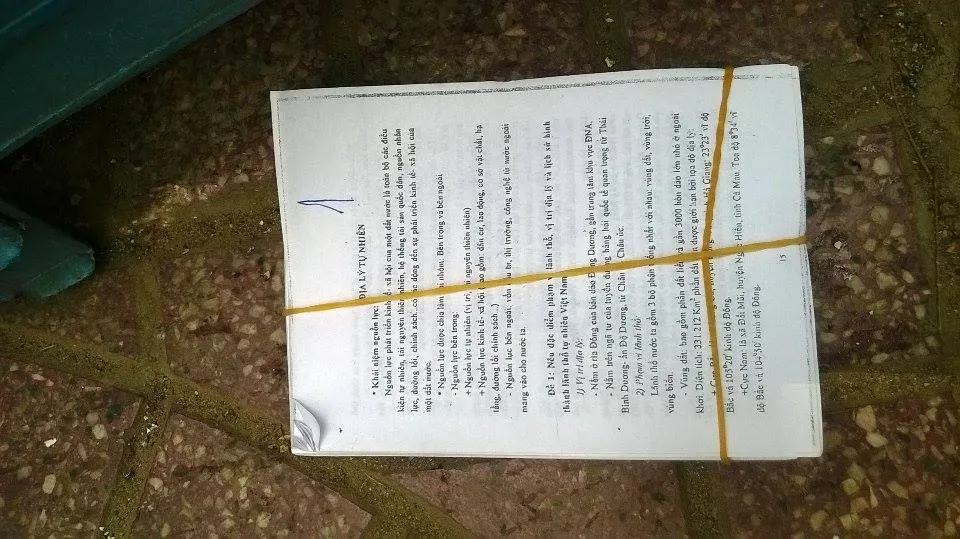 ĐỊA LÝ TỰ NHIÊN
* Khái niệm nguồn lực:
Nguồn lực phát triển kinh tế- xã hội của một đất nước là toàn bộ các điều
kiện tự nhiên, tài nguyên thiên nhiên, hệ thống tài sản quốc dân, nguồn nhân
lực, đường lối, chính sách...có tác động đến sự phát triển kinh tế- xã hội của
một đất nước.
* Nguồn lực được chia làm hai nhóm: Bên trong và bên ngoài
- Nguồn lực bên trong.
+ Nguồn lực tự nhiên (vị trí, tài nguyên thiên nhiên)
+ Nguồn lực kinh tế- xã hội bao gồm: dân cư, lao động, cơ sở vật chất, hạ
tầng, đường lối chính sách...)
- Nguồn lực bên ngoài: vốn đầu tư, thị trường, công nghệ từ nước ngoài
mang vào cho nước ta.
Đề 1: Nêu đặc điểm phạm vi lãnh thổ, vị trí địa lý và lịch sử hình
thành lãnh thổ tự nhiên Việt Nam
1) Vị trí địa lý:
- Nằm ở rìa Đông của bán đảo Đông Dương, gần trung tâm khu vực ĐNA.
- Nằm trên ngã tư của tuyến đường hàng hải quốc tế quan trọng từ Thái
Bình Dương- Ấn Độ Dương, từ Châu Á Châu úc.
2) Phạm vi lãnh thổ
Lãnh thổ nước ta gồm 3 bộ phận thống nhất với nhau: vùng đất, vùng trời,
vùng biển.
- Vùng đất, bao gồm phần đất liền và gần 3000 hòn đảo lớn nhỏ ở ngoài
khơi. Diện tích: 331.212 Km² phần đất liền được giới hạn bởi tọa độ địa lý:
+ Cực Bắc Hà Giang: 23°23' vĩ độ
Bắc và 105°20' kinh độ Đông.
+Cực Nam: là xã Đất Mũi, huyện Ngọc Hiển, tỉnh Cà Mau. Tọa độ 8°34' vĩ
độ Bắc và 104°50' kinh độ Đông.
15